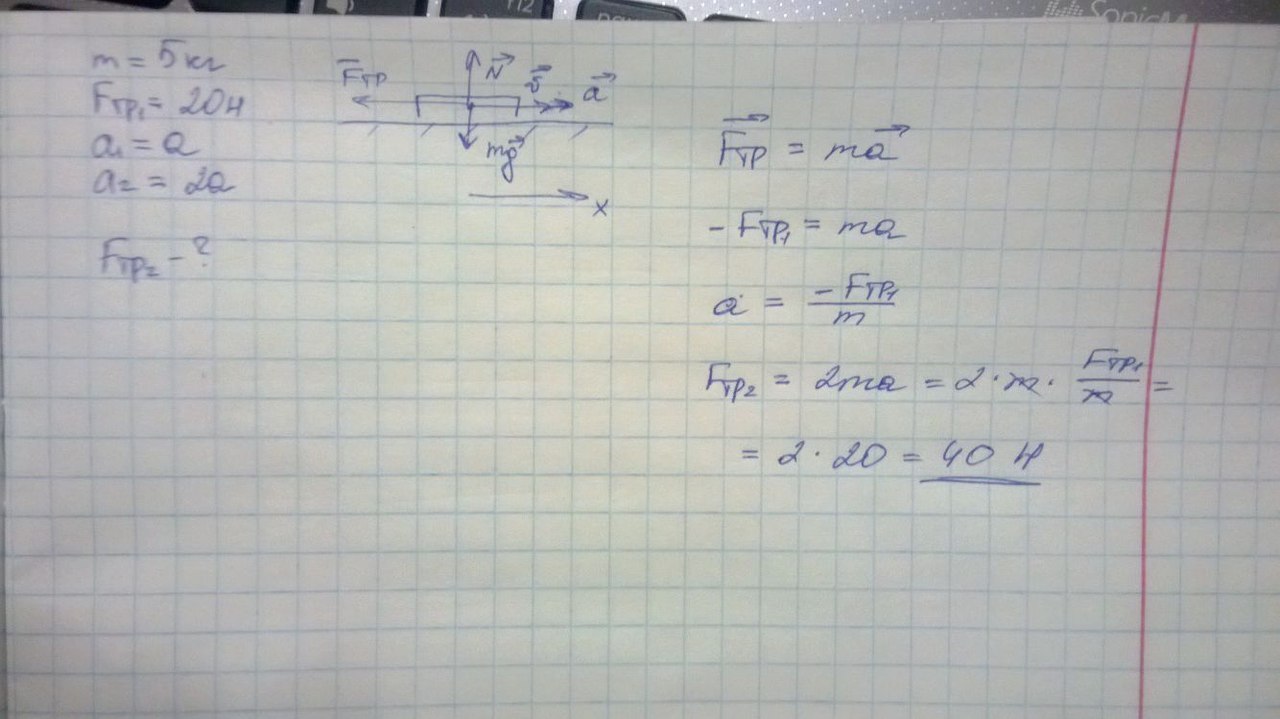 m = 5 кг
Fтр₁ = 20 н
a₁ = a
a₂ = 2a
Fтр₂ - ?
F⃗тр
N⃗
υ⃗
a⃗
mg⃗
x
F⃗тр = ma⃗
- Fтр₁ = ma
a = - Fтр₁ / m
Fтр₂ = 2ma = 2 · m · Fтр₁ / m =
= 2 · 20 = 40 н
F12
SonicM